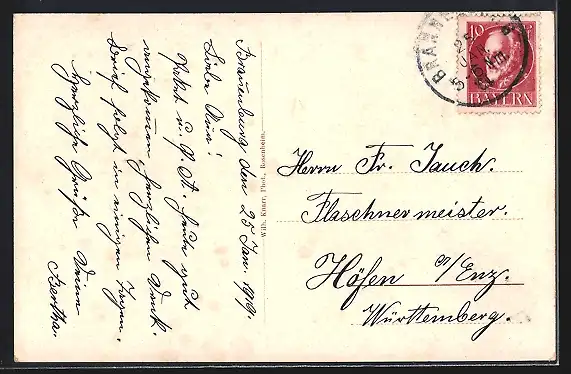 Brannenburg, den 25 Jan. 1919.
Liebe Ausn!
Paket u. g. St. heute erst
angekommen, herzlichen Dank.
Brief folgt in einigen Tagen.
Herzliche Grüße Deine
Bertha.
Wilh. Knarr, Phot., Rosenheim.
BRANNEN
25
10
BAYERN
Herrn Fr. Jauch.
Flaschnermeister.
Höfen a/Enz.
Württemberg.